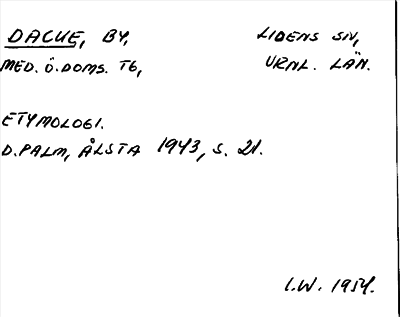 DACKE, BY, LIDENS SN,
MED. Ö. DOMS. TG, VRNL. LÄN.
ETYMOLOGI.
D. PALM, ÅLSTA 1943, S. 21.
I.W. 1954.